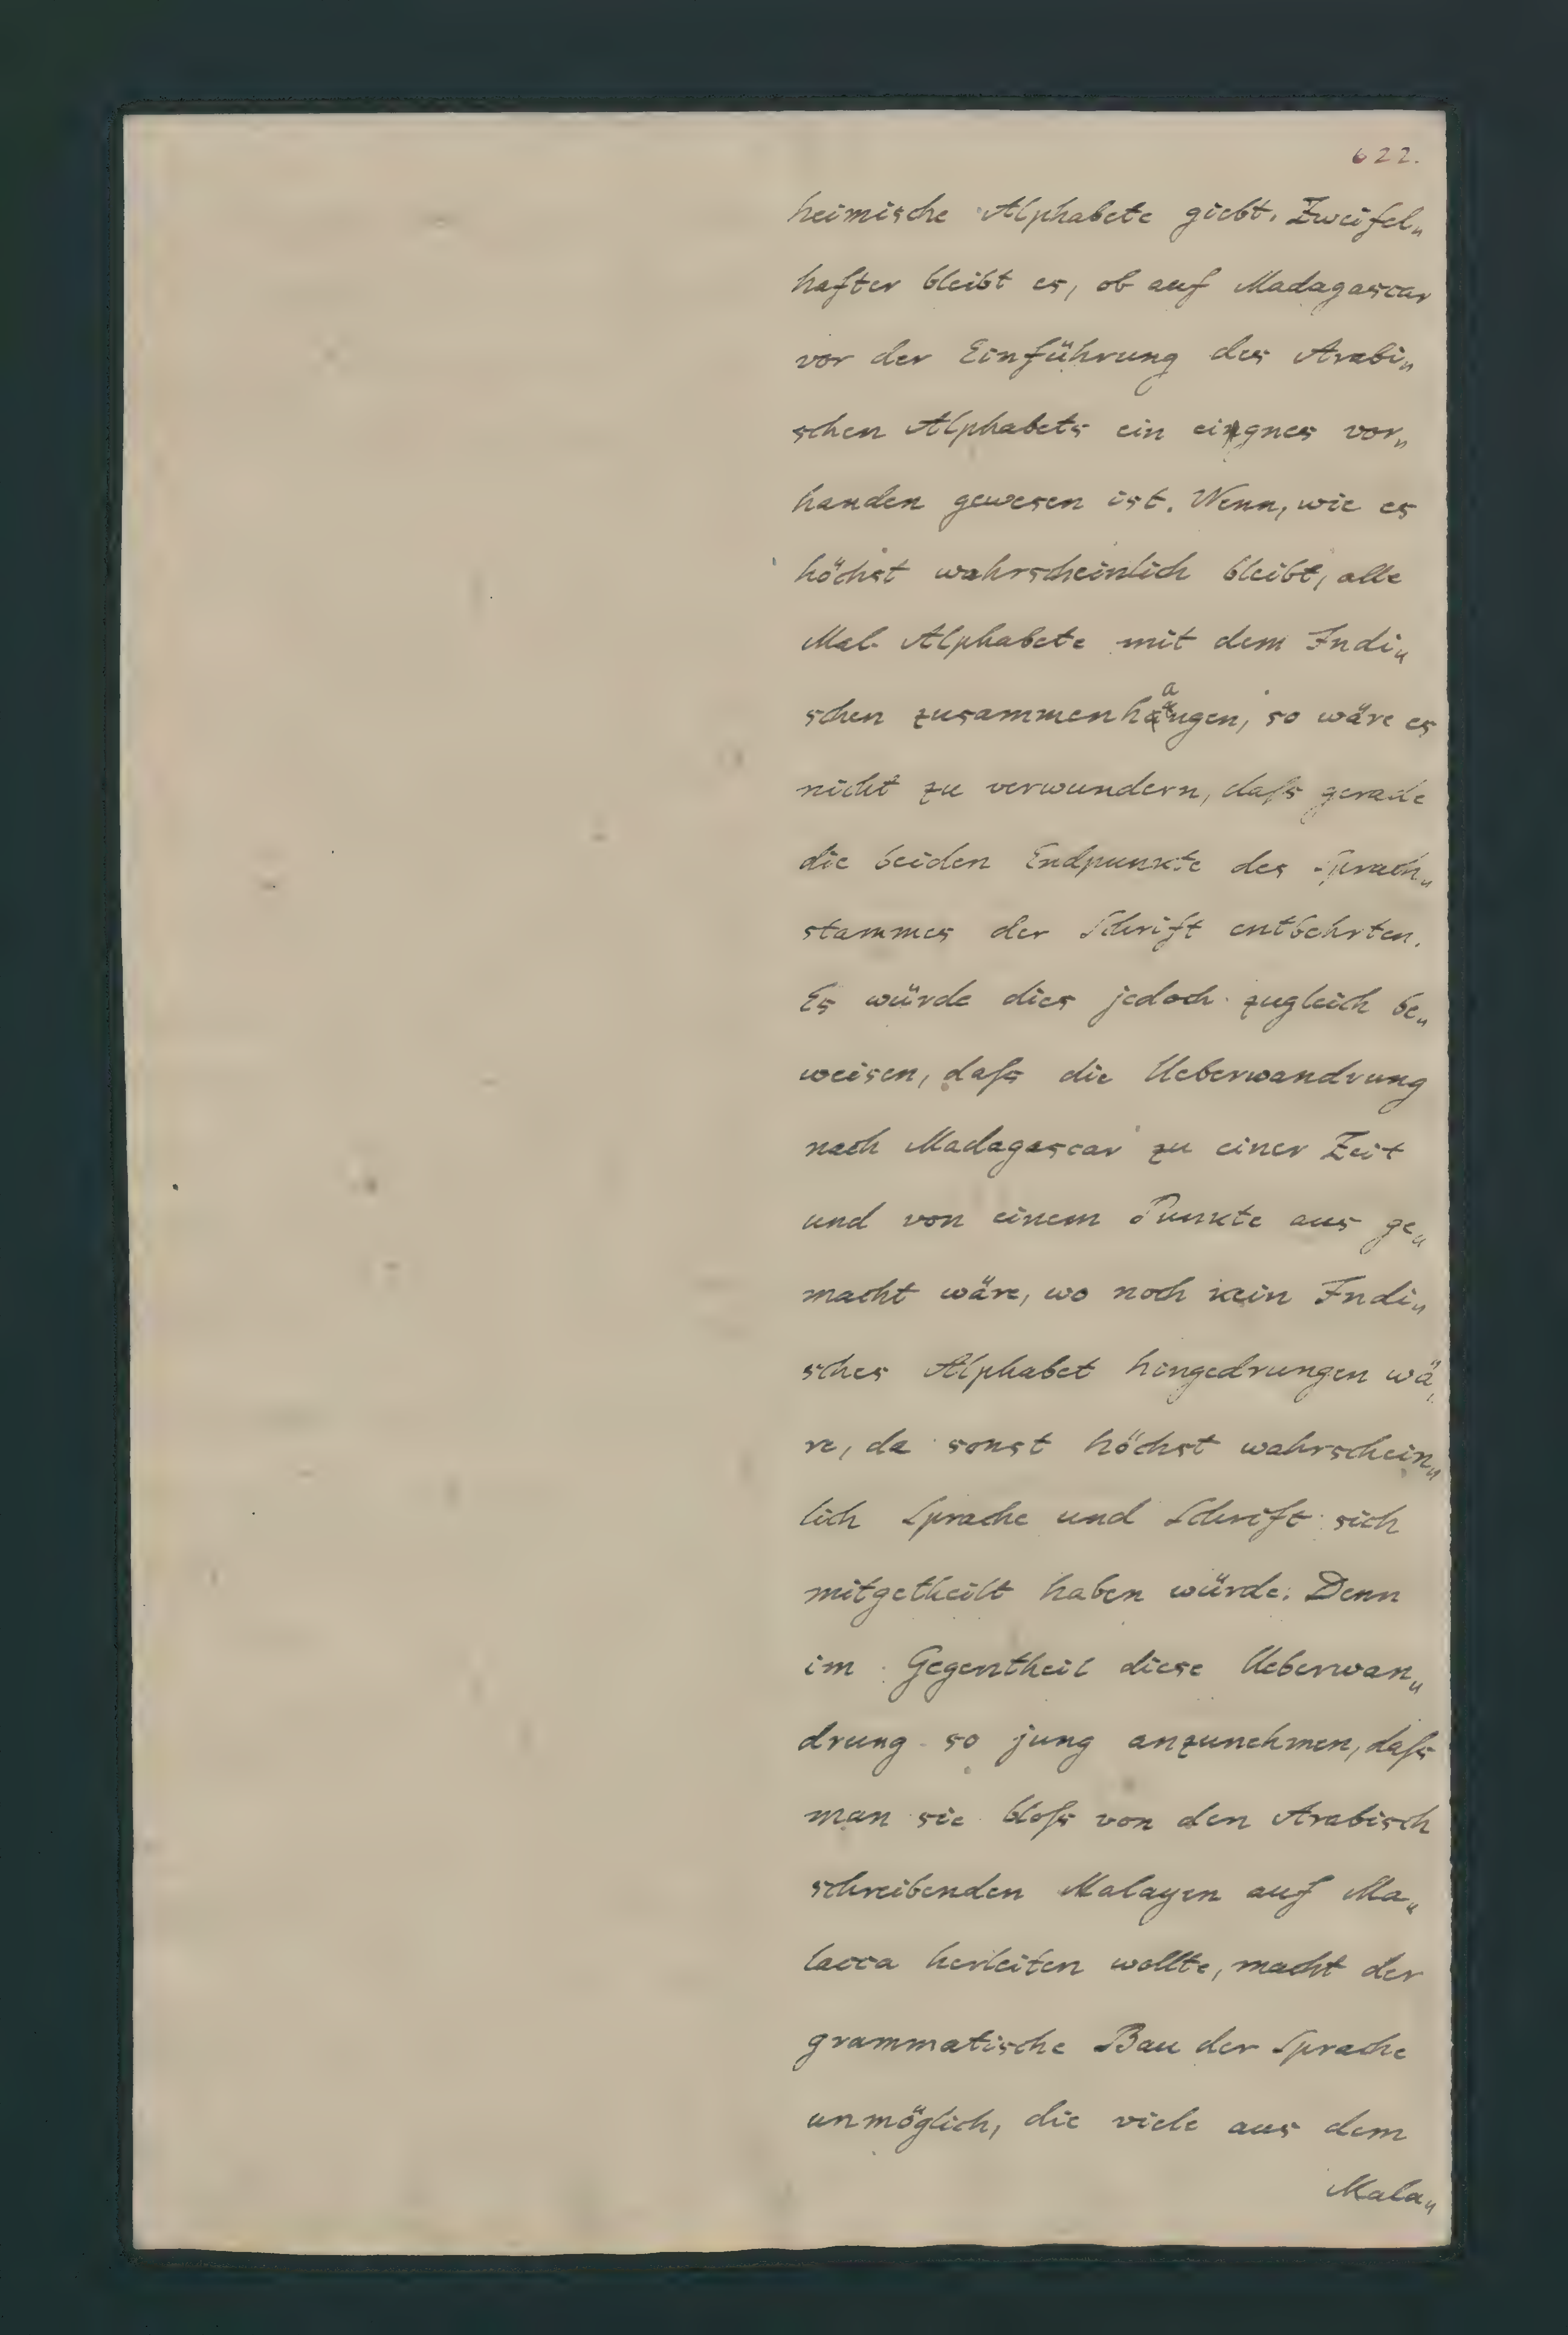 622.
heimische Alphabete giebt. Zweifel„
hafter bleibt es, ob auf Madagascar
vor der Einführung des Arabi„
schen Alphabets ein eignes vor„
handen gewesen ist. Wenn, wie es
höchst wahrscheinlich bleibt, alle
Mal. Alphabete mit dem Indi„
schen zusammenhangen, so wäre es
nicht zu verwundern, daſs gerade
die beiden Endpunkte des Sprach„
stammes der Schrift entbehrten.
Es würde dies jedoch zugleich be„
weisen, daſs die Ueberwandrung
nach Madagascar zu einer Zeit
und von einem Punkte aus ge„
macht wäre, wo noch kein Indi„
sches Alphabet hingedrungen wä„
re, da sonst höchst wahrschein„
lich Sprache und Schrift sich
mitgetheilt haben würde. Denn
im Gegentheil diese Ueberwan„
drung so jung anzunehmen, daſs
man sie bloſs von den Arabisch
schreibenden Malayen auf Ma„
lacca herleiten wollte, macht der
grammatische Bau der Sprache
unmöglich, die viele aus dem
Mala„